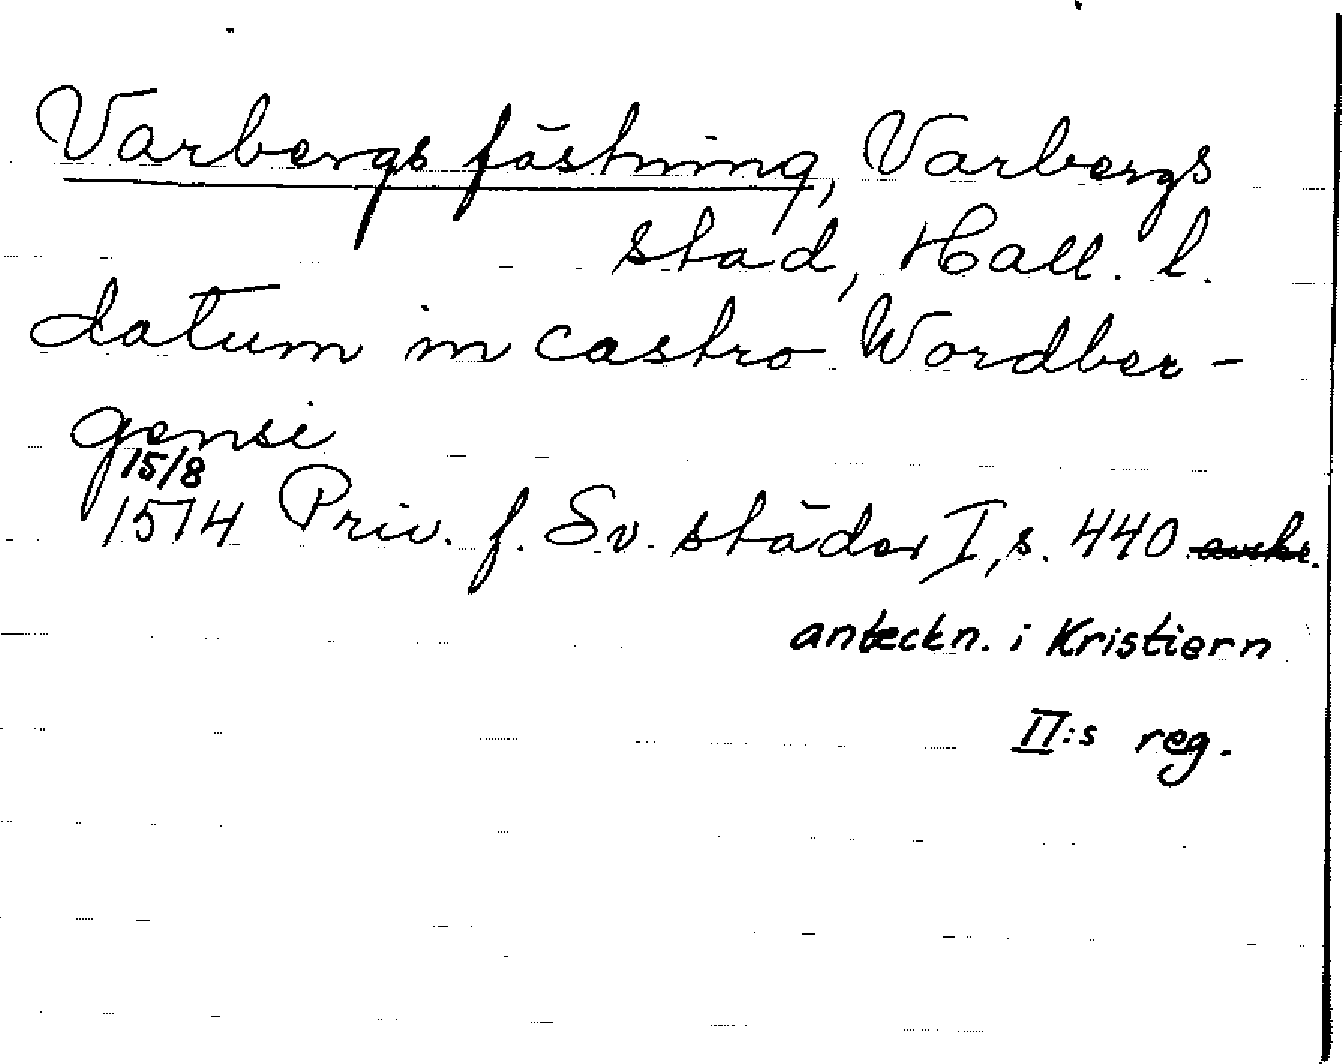 Varbergs fästning, Varbergs
stad, Hall. l.
datum in castro Wordber-
gensi
15/8
1514 Priv. f. Sv. städer I, s. 440 avskr.
anteckn. i Kristiern
II:s reg.